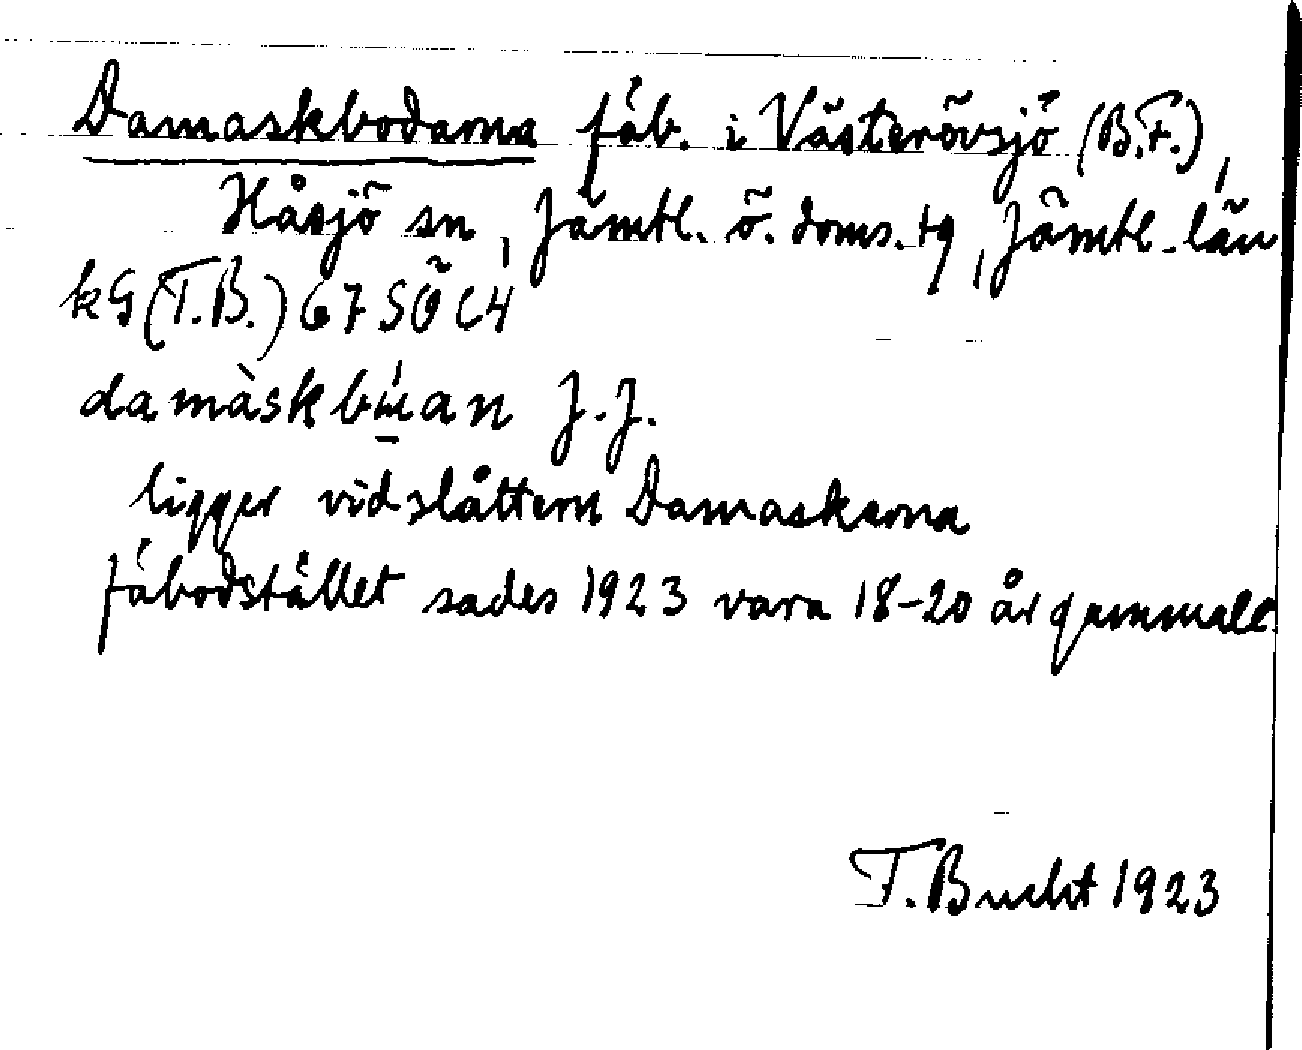 Damaskbodarna fäb. i Västerövsjö (B.F.),
Håsjö sn, Jämtl. ö. doms. tg, Jämtl. län
kG (T.B.) 67 SÖ C4
damàskbúan J.J.
ligger vid slåttern Damaskarna
fäbodstället sades 1923 vara 18-20 år gammalt.
T. Bucht 1923